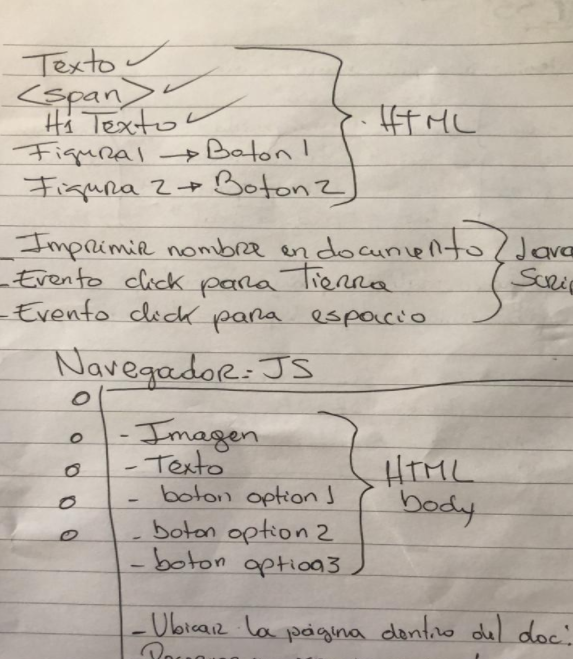 Texto ✓
<span> ✓
H1 Texto ✓
Figura1 → Boton1
Figura 2 → Boton2
HTML
- Imprimir nombre en documento
- Evento click para Tierra
- Evento click para espacio
Java
Scrip
Navegador: JS
- Imagen
- Texto
- boton option1
- boton option2
- boton option3
HTML
body
- Ubicar la página dentro del doc: